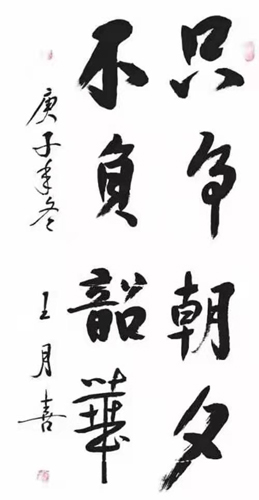 只争朝夕
不负韶華
庚子年冬 王月喜